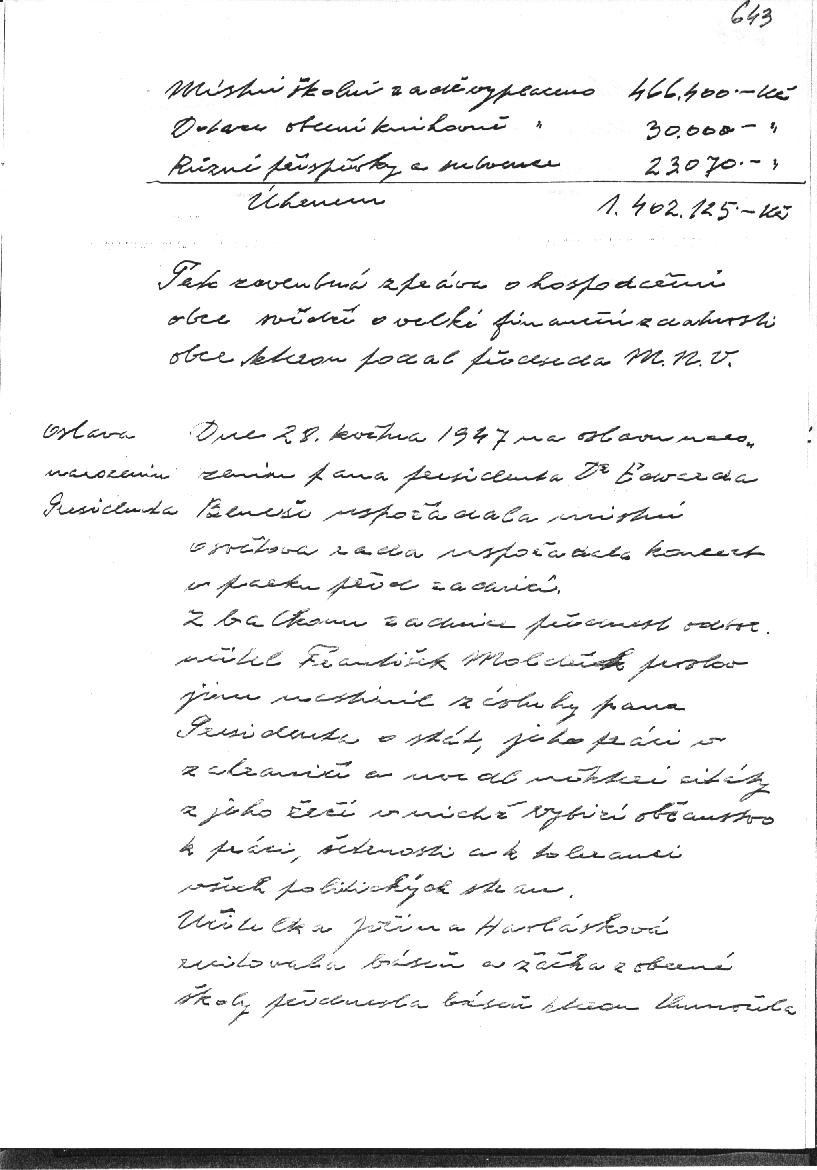 643
Místní školní radě vyplaceno 466.400·– Kč
Dotace obecní knihovně " 30.000 – "
Různé příspěvky a subvence 23070·– "
Úhrnem 1.402.125·– Kč
Tak zevrubná zpráva o hospodaření
obce svědčí o velké finanční zdatnosti
obce kterou podal předseda M.N.V.
Oslava narozenin Presidenta
Dne 28. května 1947 na oslavu naro„
zenin pana presidenta Dr Edwarda
Beneše uspořádala místní
osvětova rada uspořádala koncert
v parku před radnicí.
Z balkonu radnice přednesl odbor.
učitel František proslov
jímž nastínil zásluhy pana
Presidenta o stát, jeho práci v
zahraničí a uvedl některé citáty
z jeho řečí v nichž vybízí občanstvo
k práci, šetrnosti a k toleranci
všech politických stran.
Učitelka Jiřina Havlásková
recitovala báseň a žačka obecné
školy přednesla báseň kterou